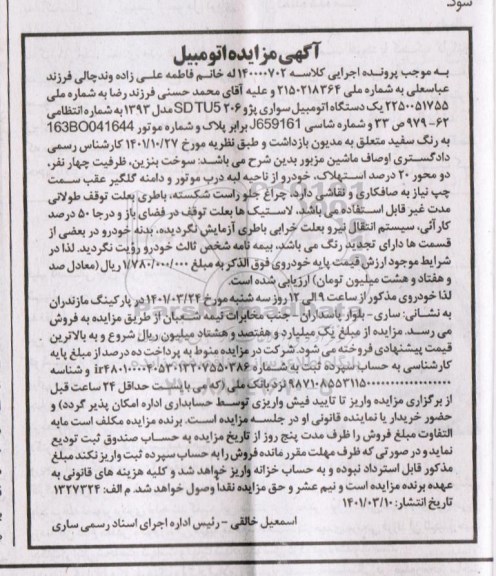 شود.
آگهی مزایده اتومبیل
به موجب پرونده اجرایی کلاسه ۱۴۰۰۰۰۷۰۲ له خانم فاطمه علی زاده وندچالی فرزند
عباسعلی به شماره ملی ۲۱۵۰۲۱۸۳۶۴ و علیه آقای محمد حسنی فرزند رضا به شماره ملی
۲۲۵۰۰۵۱۷۵۵ یک دستگاه اتومبیل سواری پژو ۲۰۶ SD TU5 مدل ۱۳۹۳ به شماره انتظامی
۶۲- ۹۷۹ ص ۳۳ و شماره شاسی J659161 برابر پلاک و شماره موتور 163BO041644
به رنگ سفید متعلق به مدیون بازداشت و طبق نظریه مورخ ۱۴۰۱/۱۰/۲۷ کارشناس رسمی
دادگستری اوصاف ماشین مزبور بدین شرح می باشد: سوخت بنزین، ظرفیت چهار نفر،
دو محور ۲۰ درصد استهلاک، خودرو از ناحیه لبه درب موتور و دامنه گلگیر عقب سمت
چپ نیاز به صافکاری و نقاشی دارد، چراغ جلو راست شکسته، باطری بعلت توقف طولانی
مدت غیر قابل استفاده می باشد، لاستیک ها بعلت توقف در فضای باز و درجا ۵۰ درصد
کارآئی، سیستم انتقال نیرو بعلت خرابی باطری آزمایش نگردیده، بدنه خودرو در بعضی از
قسمت ها دارای تجدید رنگ می باشد، بیمه نامه شخص ثالث خودرو رؤیت نگردید. لذا در
شرایط موجود ارزش قیمت پایه خودروی فوق الذکر به مبلغ ۱/۷۸۰/۰۰۰/۰۰۰ ریال (معادل صد
و هفتاد و هشت میلیون تومان) ارزیابی شده است.
لذا خودروی مذکور از ساعت ۹ الی ۱۲ روز سه شنبه مورخ ۱۴۰۱/۰۳/۲۴ در پارکینگ مازندران
به نشانی: ساری- بلوار پاسداران - جنب مخابرات نیمه شعبان از طریق مزایده به فروش
می رسد. مزایده از مبلغ یک میلیارد و هفتصد و هشتاد میلیون ریال شروع و به بالاترین
قیمت پیشنهادی فروخته می شود. شرکت در مزایده منوط به پرداخت ده درصد از مبلغ پایه
کارشناسی به حساب سپرده ثبت به شماره
نزد بانک ملی (که می بایست حداقل ۲۴ ساعت قبل
از برگزاری مزایده واریز تا تایید فیش واریزی توسط حسابداری اداره امکان پذیر گردد) و
حضور خریدار یا نماینده قانونی او در جلسه مزایده است. برنده مزایده مکلف است مابه
التفاوت مبلغ فروش را ظرف مدت پنج روز از تاریخ مزایده به حساب صندوق ثبت تودیع
نماید و در صورتی که ظرف مهلت مقرر مانده فروش را به حساب سپرده ثبت واریز نکند مبلغ
مذکور قابل استرداد نبوده و به حساب خزانه واریز خواهد شد و کلیه هزینه های قانونی به
عهده برنده مزایده است و نیم عشر و حق مزایده نقدا وصول خواهد شد. م الف: ۱۳۲۷۳۲۴
تاریخ انتشار: ۱۴۰۱/۰۳/۱۰
اسمعیل خالقی - رئیس اداره اجرای اسناد رسمی ساری